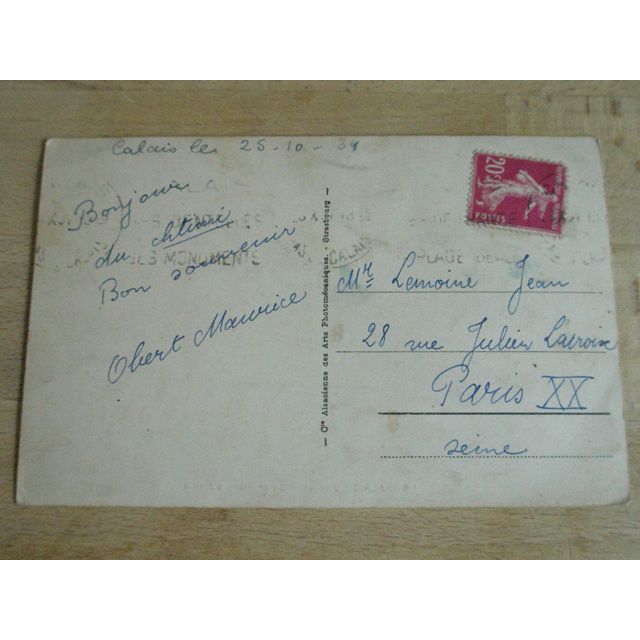 Calais le 25-10-34
20c
POSTES
Bonjour
du chtimi
Bon souvenir
Obert Maurice
— Cie Alsacienne des Arts Photomécaniques - Strasbourg —
SES MONUMENTS
CALAIS
PLAGE
Mr Lemoine Jean
28 rue Julien Lacroix
Paris XX
Seine